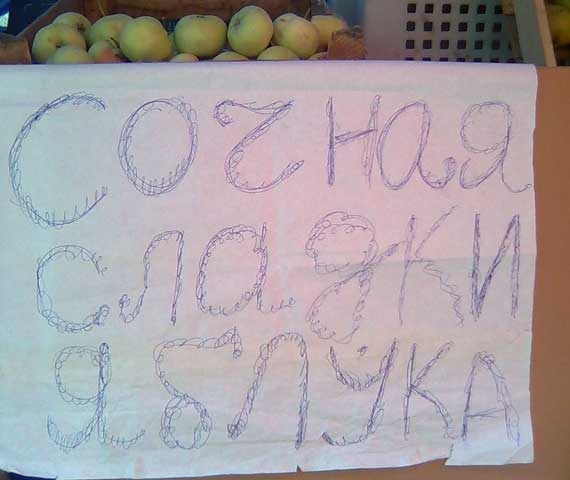 СОЧНАЯ
СЛАДКИ
ЯБЛУКА